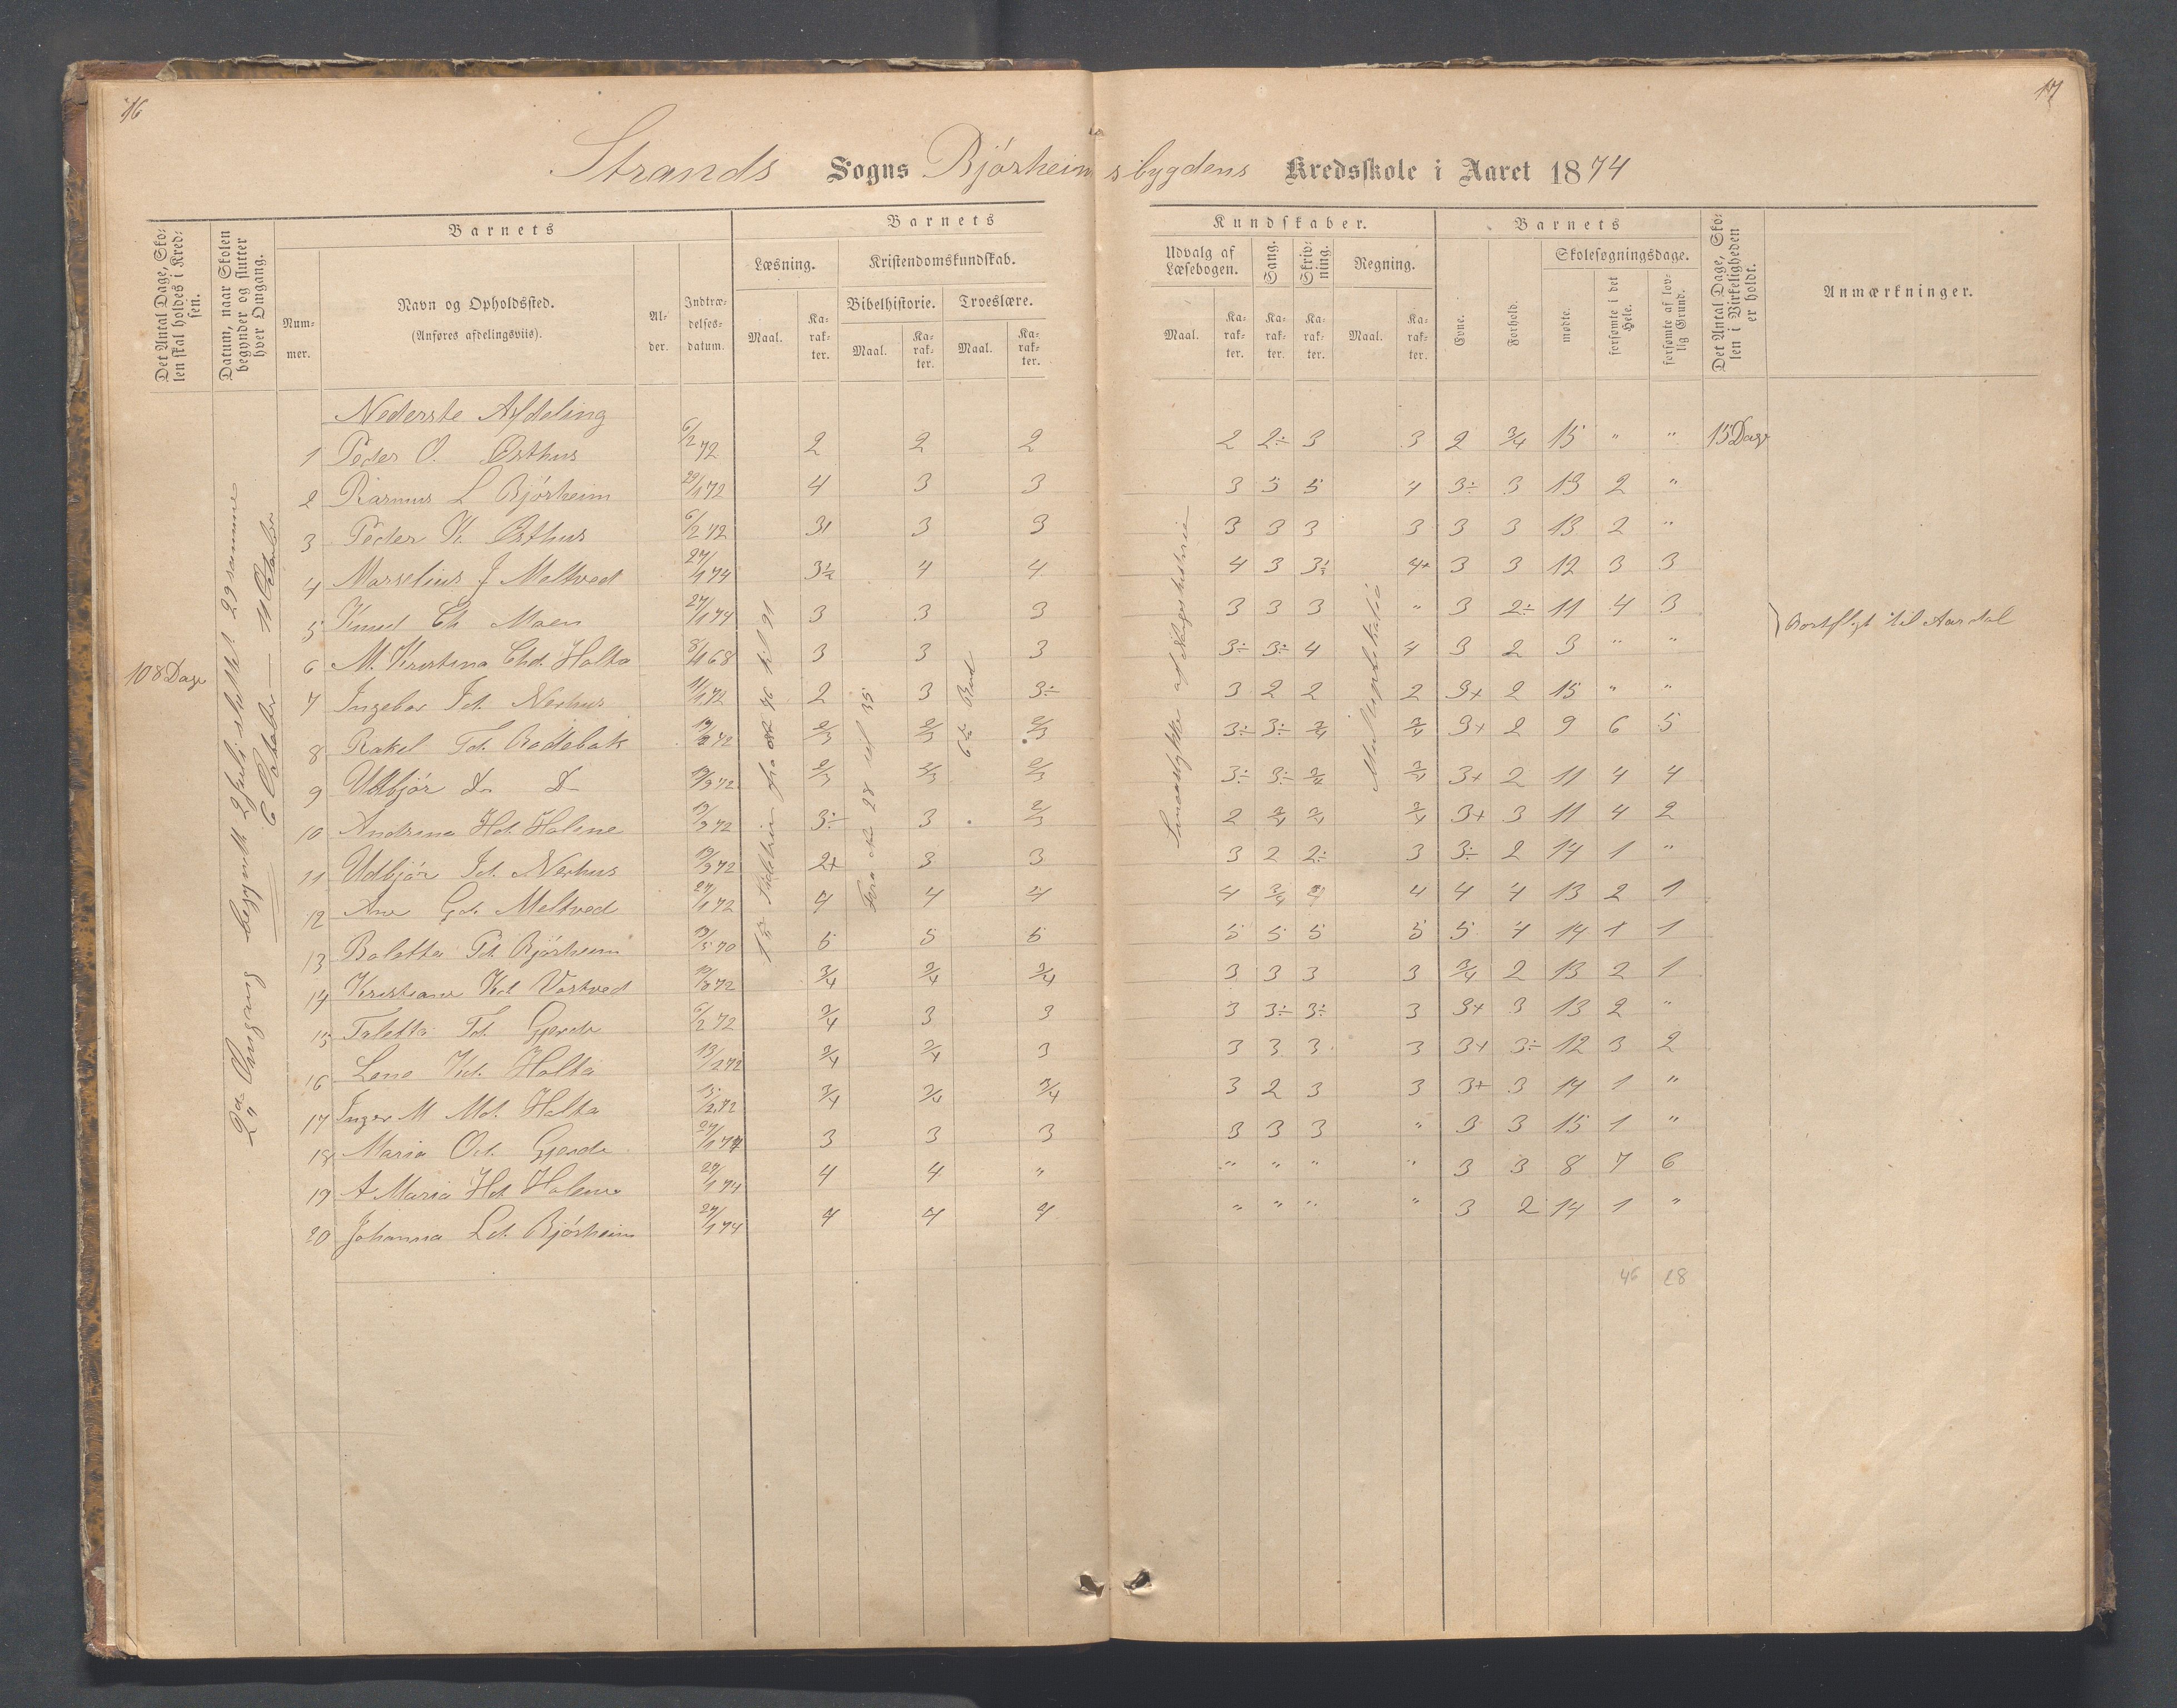 16
17
Strands Sogns Bjørheimsbygdens Kredsskole i Aaret 1874
Det Antal Dage, Skolen skal holdes i Kredsen.
Datum, naar Skolen begynder og slutter hver Omgang.
Barnets
Barnets
Kundskaber.
Barnets
Det Antal Dage, Skolen i Virkeligheden er holdt.
Anmærkninger.
Nummer.
Navn og Opholdssted.
(Anføres afdelingsviis).
Alder.
Indtrædelsesdatum.
Læsning.
Kristendomskundskab.
Bibelhistorie.
Troeslære.
Maal.
Karakter.
Maal.
Karakter.
Maal.
Karakter.
Udvalg af Læsebogen.
Sang.
Skrivning.
Regning.
Maal.
Karakter.
Karakter.
Karakter.
Maal.
Karakter.
Evne.
Forhold.
Skolesøgningsdage.
mødte.
forsømte i det Hele.
forsømte af lovlig Grund.
108 Dage
2d Omgang begyndt 2 Juli sluttet 29 samme
6 Oktober — 11 Oktober
Nederste Afdeling
1 Peder O. Østhus 6/2 72 2 2 2 2 2÷ 3 3 2 3/4 15 " " 15 Dage
2 Rasmus L Bjørheim 29/1 72 4 3 3 3 5 5 4 3÷ 3 13 2 "
3 Peder K. Østhus 6/2 72 3 3 3 3 3 3 3 3 3 13 2 "
4 Marselius J Meltved 27/1 74 3½ 4 4 4 3 3½ 4+ 3 3 12 3 3
5 Knud Ch Moen 27/1 74 3 3 3 3 3 3 " 3 2÷ 11 4 3
6 M. Kristina Chd. Holta 8/1 68 3 3 3 3÷ 3÷ 4 4 3 2 3 " " Bortflyt til Aardal
7 Ingebor Td. Nerhus 11/1 72 2 3 3÷ 3 2 2 2 3+ 2 15 " "
8 Rakel Td. Bodebak 19/2 72 2/3 2/3 2/3 3÷ 3÷ 3/4 3/4 3+ 2 9 6 5
9 Udbjør D- D- 19/3 72 2/3 2/3 2/3 3÷ 3÷ 3/4 3/4 3+ 2 11 4 4
10 Andrena Hd. Holene 19/3 72 3÷ 3 2/3 2 3/4 3/4 3/4 3+ 3 11 4 2
11 Udbjør Td. Nerhus 19/3 72 2+ 3 3 3 2 2÷ 3 3÷ 2 14 1 "
12 Ane Gd. Meltved 27/1 72 4 4 4 4 3/4 4 4 4 4 13 2 1
13 Boletta Pd. Bjørheim 19/5 70 5 5 5 5 5 5 5 5 4 14 1 1
14 Kristiane Kd. Vostved 19/3 72 3/4 3/4 3/4 3 3 3 3 3/4 2 13 2 1
15 Taletta Td. Gjerde 6/2 72 3/4 3 3 3 3÷ 3÷ 3 3+ 3 13 2 "
16 Lene Kd. Holta 13/2 72 3/4 3/4 3 3 3 3 3 3+ 3÷ 12 3 2
17 Inger M Md. Holta 13/2 72 3/4 3/4 3/4 3 2 3 3 3+ 3 14 1 "
18 Maria Od. Gjerde 27/1 74 3 3 3 3 3 3 " 3 3 15 1 "
19 A Maria Hd. Holene 29/1 74 4 4 " " " " " 3 3 8 7 6
20 Johanna Ld. Bjørheim 27/1 74 4 4 4 " " " " 3 2 14 1 "
46 28
Fra 28 til 35
6te Bud
Multiplikatio